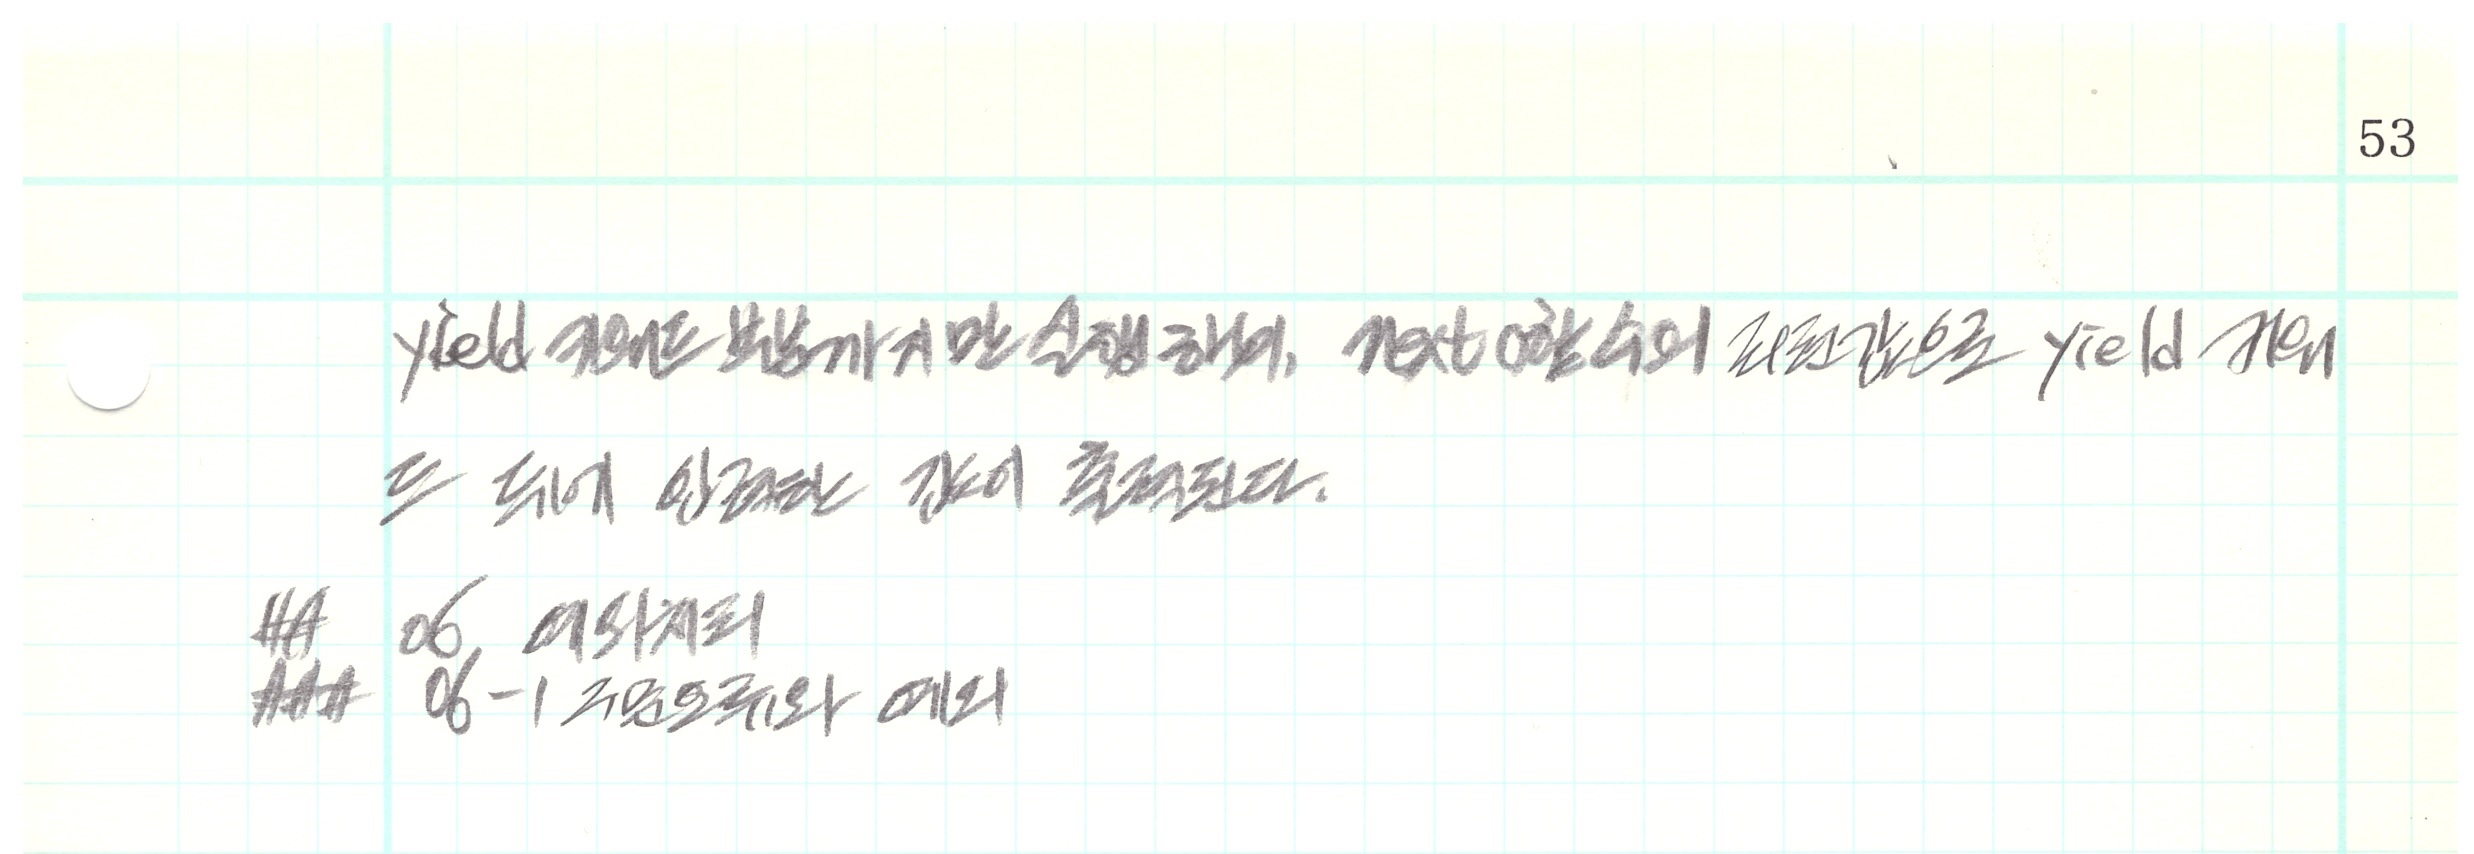 53
yield 키워드 부분까지만 실행하며, next 함수의 리턴값으로 yield 키워
드 뒤에 입력한 값이 출력된다.
## 06 예외처리
### 06-1 구문오류와 예외